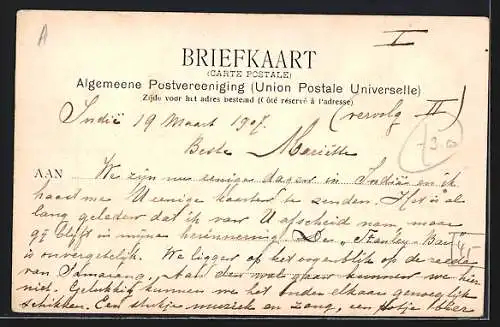 A
I
BRIEFKAART
(CARTE POSTALE)
Algemeene Postvereeniging (Union Postale Universelle)
Zijde voor het adres bestemd (Côté réservé à l'adresse)
Indië 19 Maart 1907. (vervolg II)
Beste Mariëtte
AAN We zijn nu eenige dagen in Indië en ik
haast me U eenige kaarten te zenden. Het is al
lang geleden dat ik van U afscheid nam maar
gij blijft in mijne herinnering. De
is onvergetelijk. We liggen op het oogenblik op de reede
van Samarang. Aan den wal gaan kunnen we hier
niet. Gelukkig kunnen we het onder elkaar genoegelijk
schikken. Een stukje muziek en zang, een potje bier